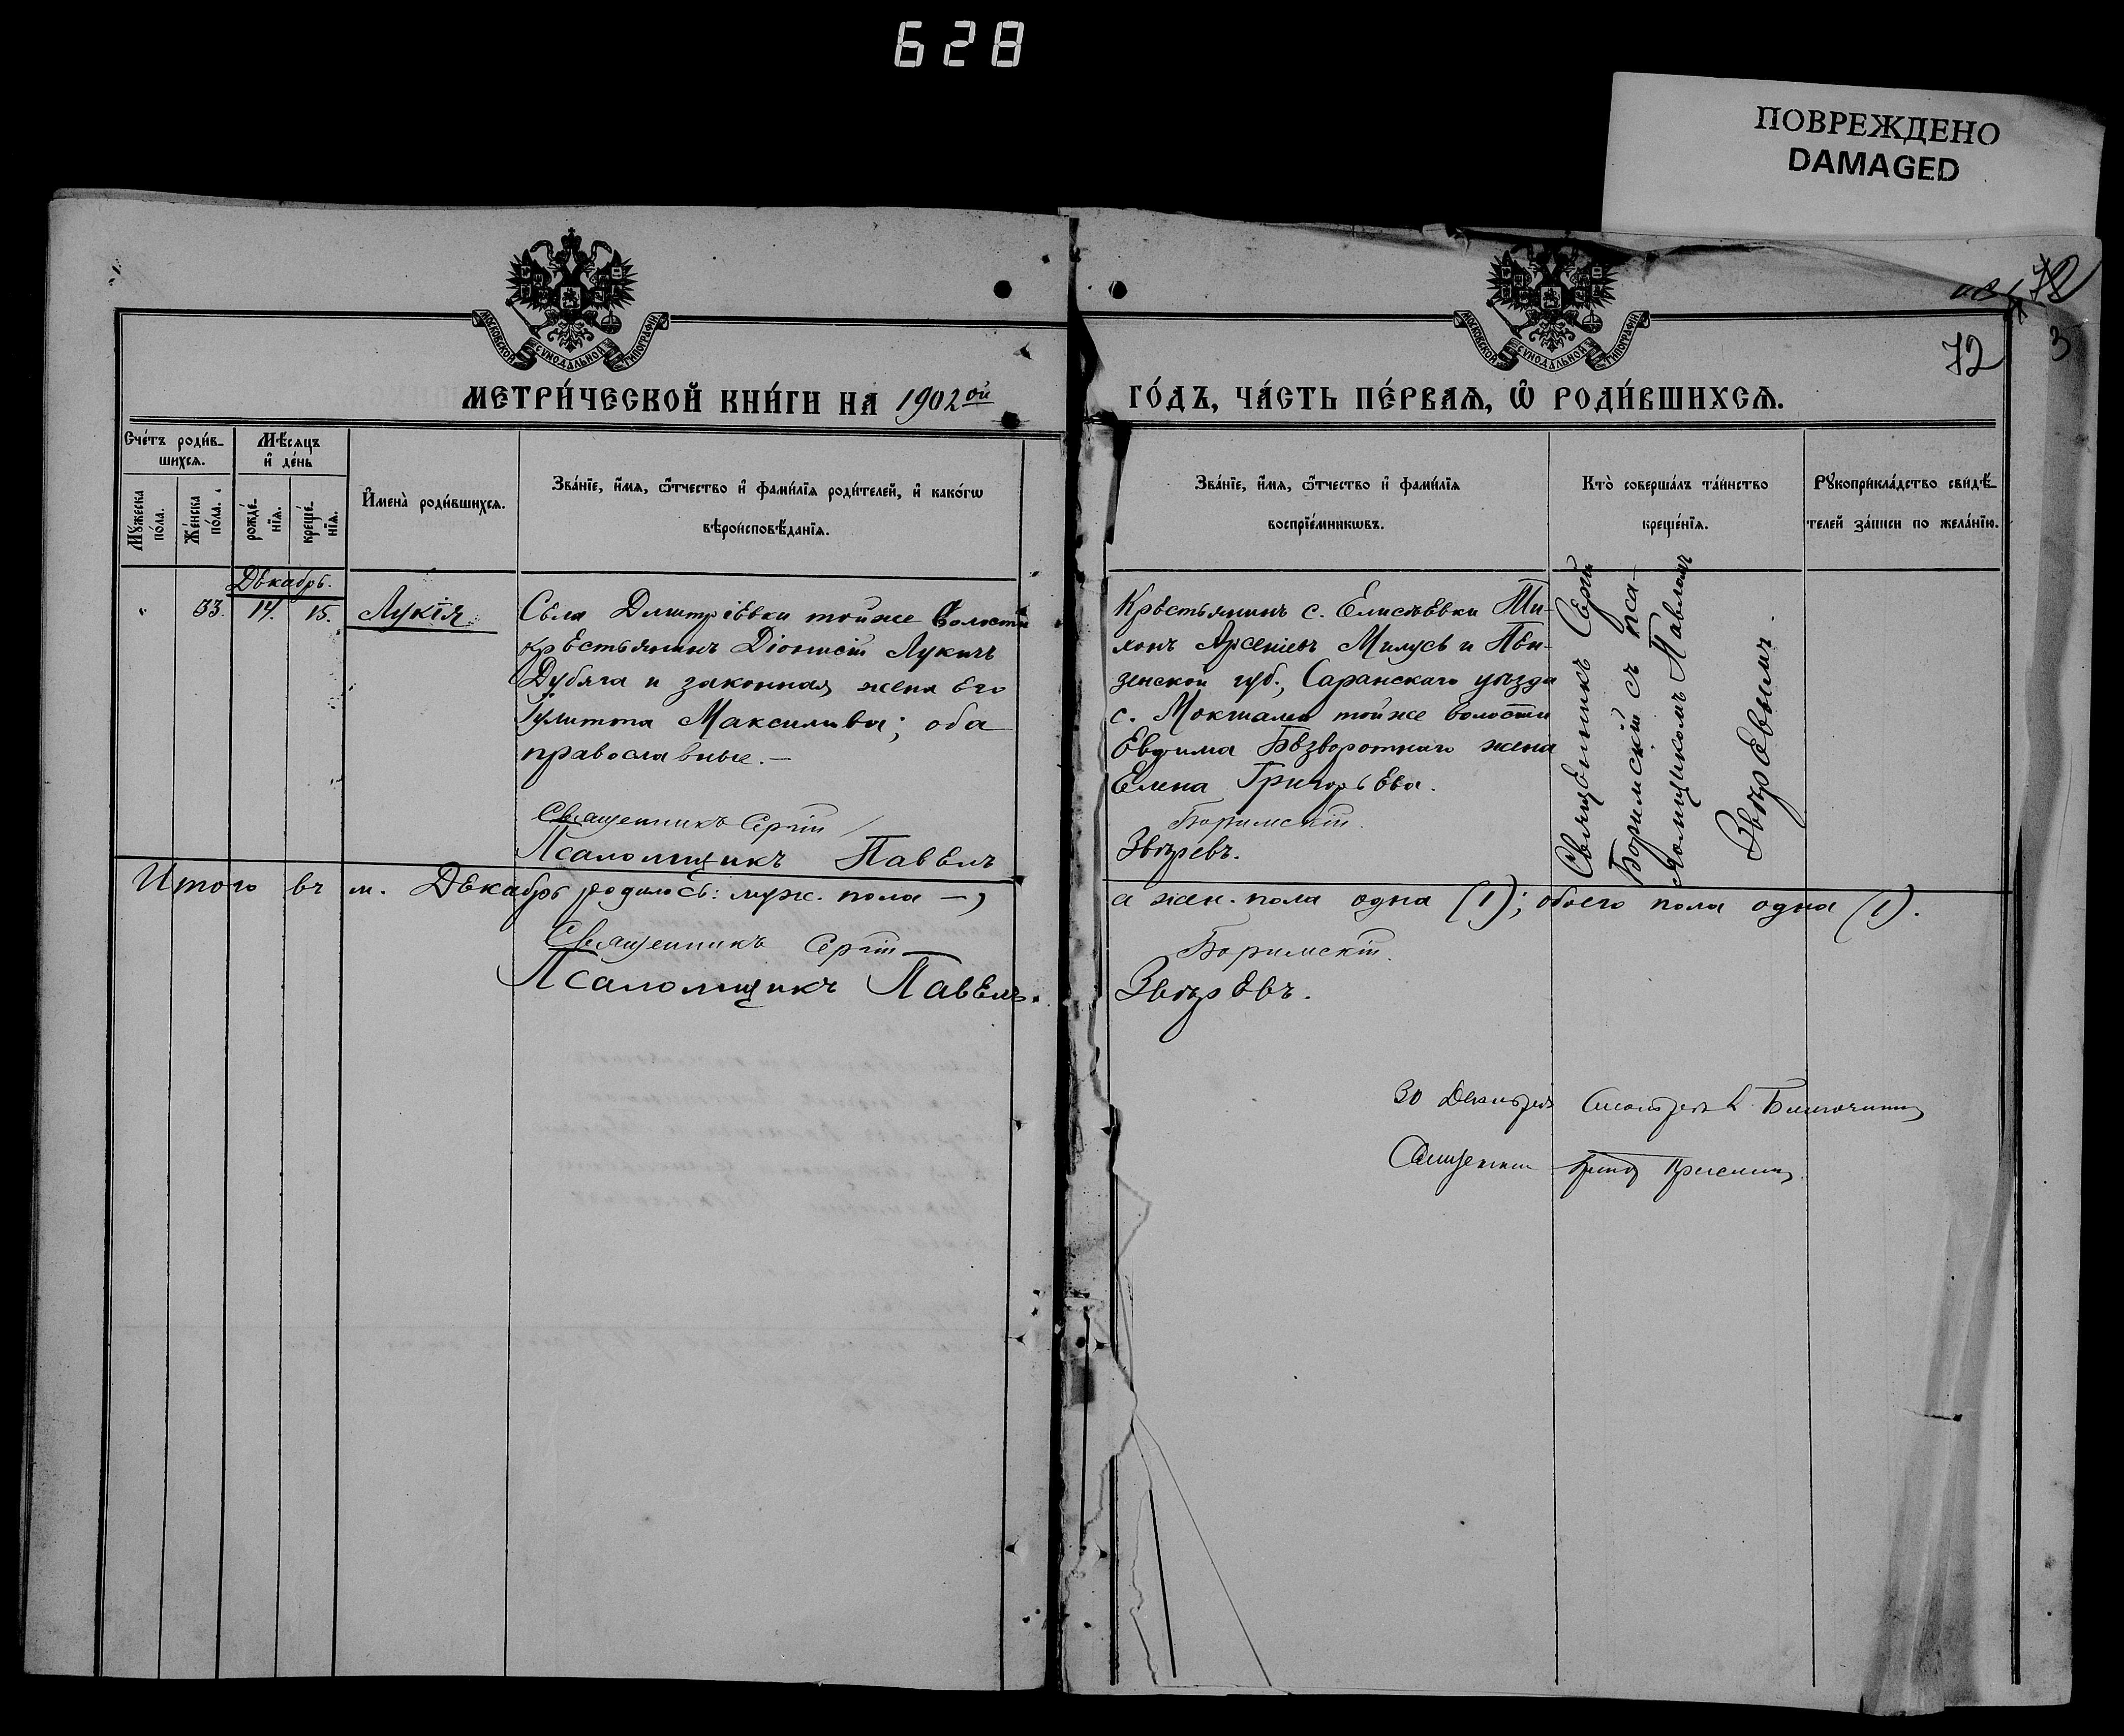 628
ПОВРЕЖДЕНО
DAMAGED
72
3
72
МОСКОВСКОЙ СѴНОДАЛЬНОЙ ТИПОГРАФІИ
МОСКОВСКОЙ СѴНОДАЛЬНОЙ ТИПОГРАФІИ
МЕТРИ́ЧЕСКОЙ КНИ́ГИ НА 1902ой
ГО́ДЪ, ЧА́СТЬ ПЕ́РВАѦ, Ѽ РОДИ́ВШИХСѦ.
Сче́тъ роди́в-
шихсѧ.
Мꙋ́жеска
по́ла.
Же́нска
по́ла.
Мѣ́сѧцъ
и҆ де́нь
рожде́-
нїѧ.
креще́-
нїѧ.
И҆мена̀ роди́вшихсѧ.
Зва́нїе, и҆́мѧ, ѻ҆́тчество и҆ фами́лїѧ роди́телей, и҆ како́гѡ
вѣроисповѣ́данїѧ.
Зва́нїе, и҆́мѧ, ѻ҆́тчество и҆ фами́лїѧ
воспрїе́мникѡвъ.
Кто̀ соверша́лъ та́инство
креще́нїѧ.
Рꙋкоприкла́дство свидѣ́-
телей за́писи по жела́нїю.
Декабрь.
" 33. 14. 15. Лукія
Села Димитріевки тойже волости
крестьянинъ Діонисій Лукичъ
Дубяга и законная жена его
Гулитта Максимова; оба
православные.—
Священникъ Сергій
Псаломщикъ Павелъ
Крестьянинъ с. Елисѣевки Ти-
хонъ Арсеніевъ Милусь и Пен-
зенской губ., Саранскаго уѣзда
с. Мокшалей тойже волости
Евфима Безворотнаго жена
Елена Григорьева.
Боримскій.
Звѣревъ.
Священникъ Сергій
Боримскій съ пса-
ломщикомъ Павломъ
Звѣревымъ.
Итого въ м. Декабрѣ родилось: муж. пола —,
а жен. пола одна (1); обоего пола одна (1).
Священникъ Сергій
Боримскій.
Псаломщикъ Павелъ.
Звѣревъ.
30 Декабря
Священникъ